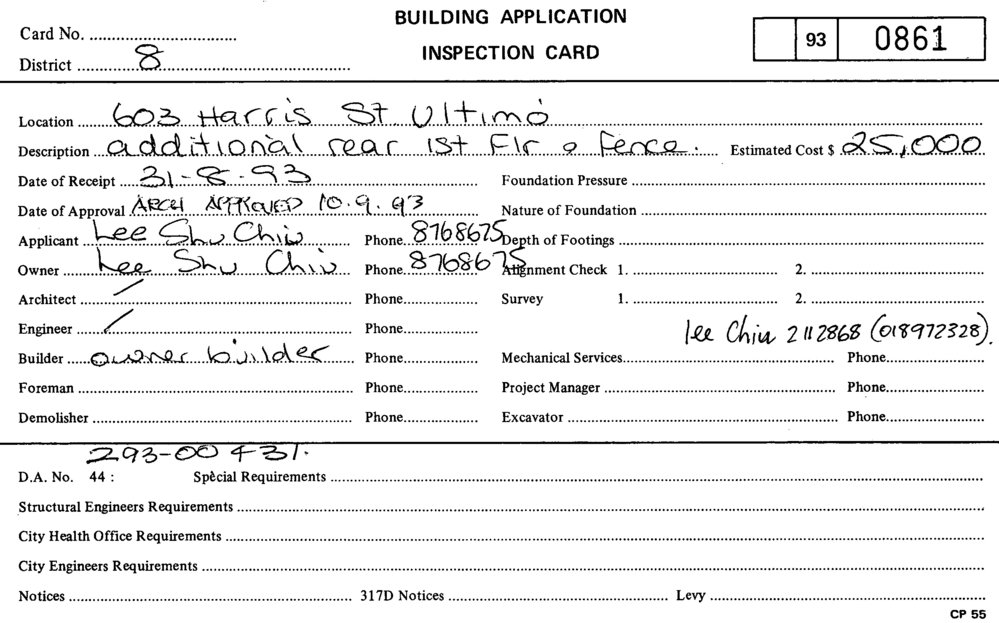 BUILDING APPLICATION
INSPECTION CARD
Card No.
District 8
93 0861
Location 603 Harris St Ultimo
Description additional rear 1st Flr & Fence. Estimated Cost $ 25,000
Date of Receipt 31-8-93 Foundation Pressure
Date of Approval ARCH APPROVED 10.9.93 Nature of Foundation
Applicant Lee Shu Chiu Phone 8768675 Depth of Footings
Owner Lee Shu Chiu Phone 8768675 Alignment Check 1. 2.
Architect / Phone Survey 1. 2.
Engineer / Phone lee Chiu 2112868 (018972328).
Builder owner builder Phone Mechanical Services Phone
Foreman Phone Project Manager Phone
Demolisher Phone Excavator Phone
293-00431.
D.A. No. 44 : Special Requirements
Structural Engineers Requirements
City Health Office Requirements
City Engineers Requirements
Notices 317D Notices Levy
CP 55